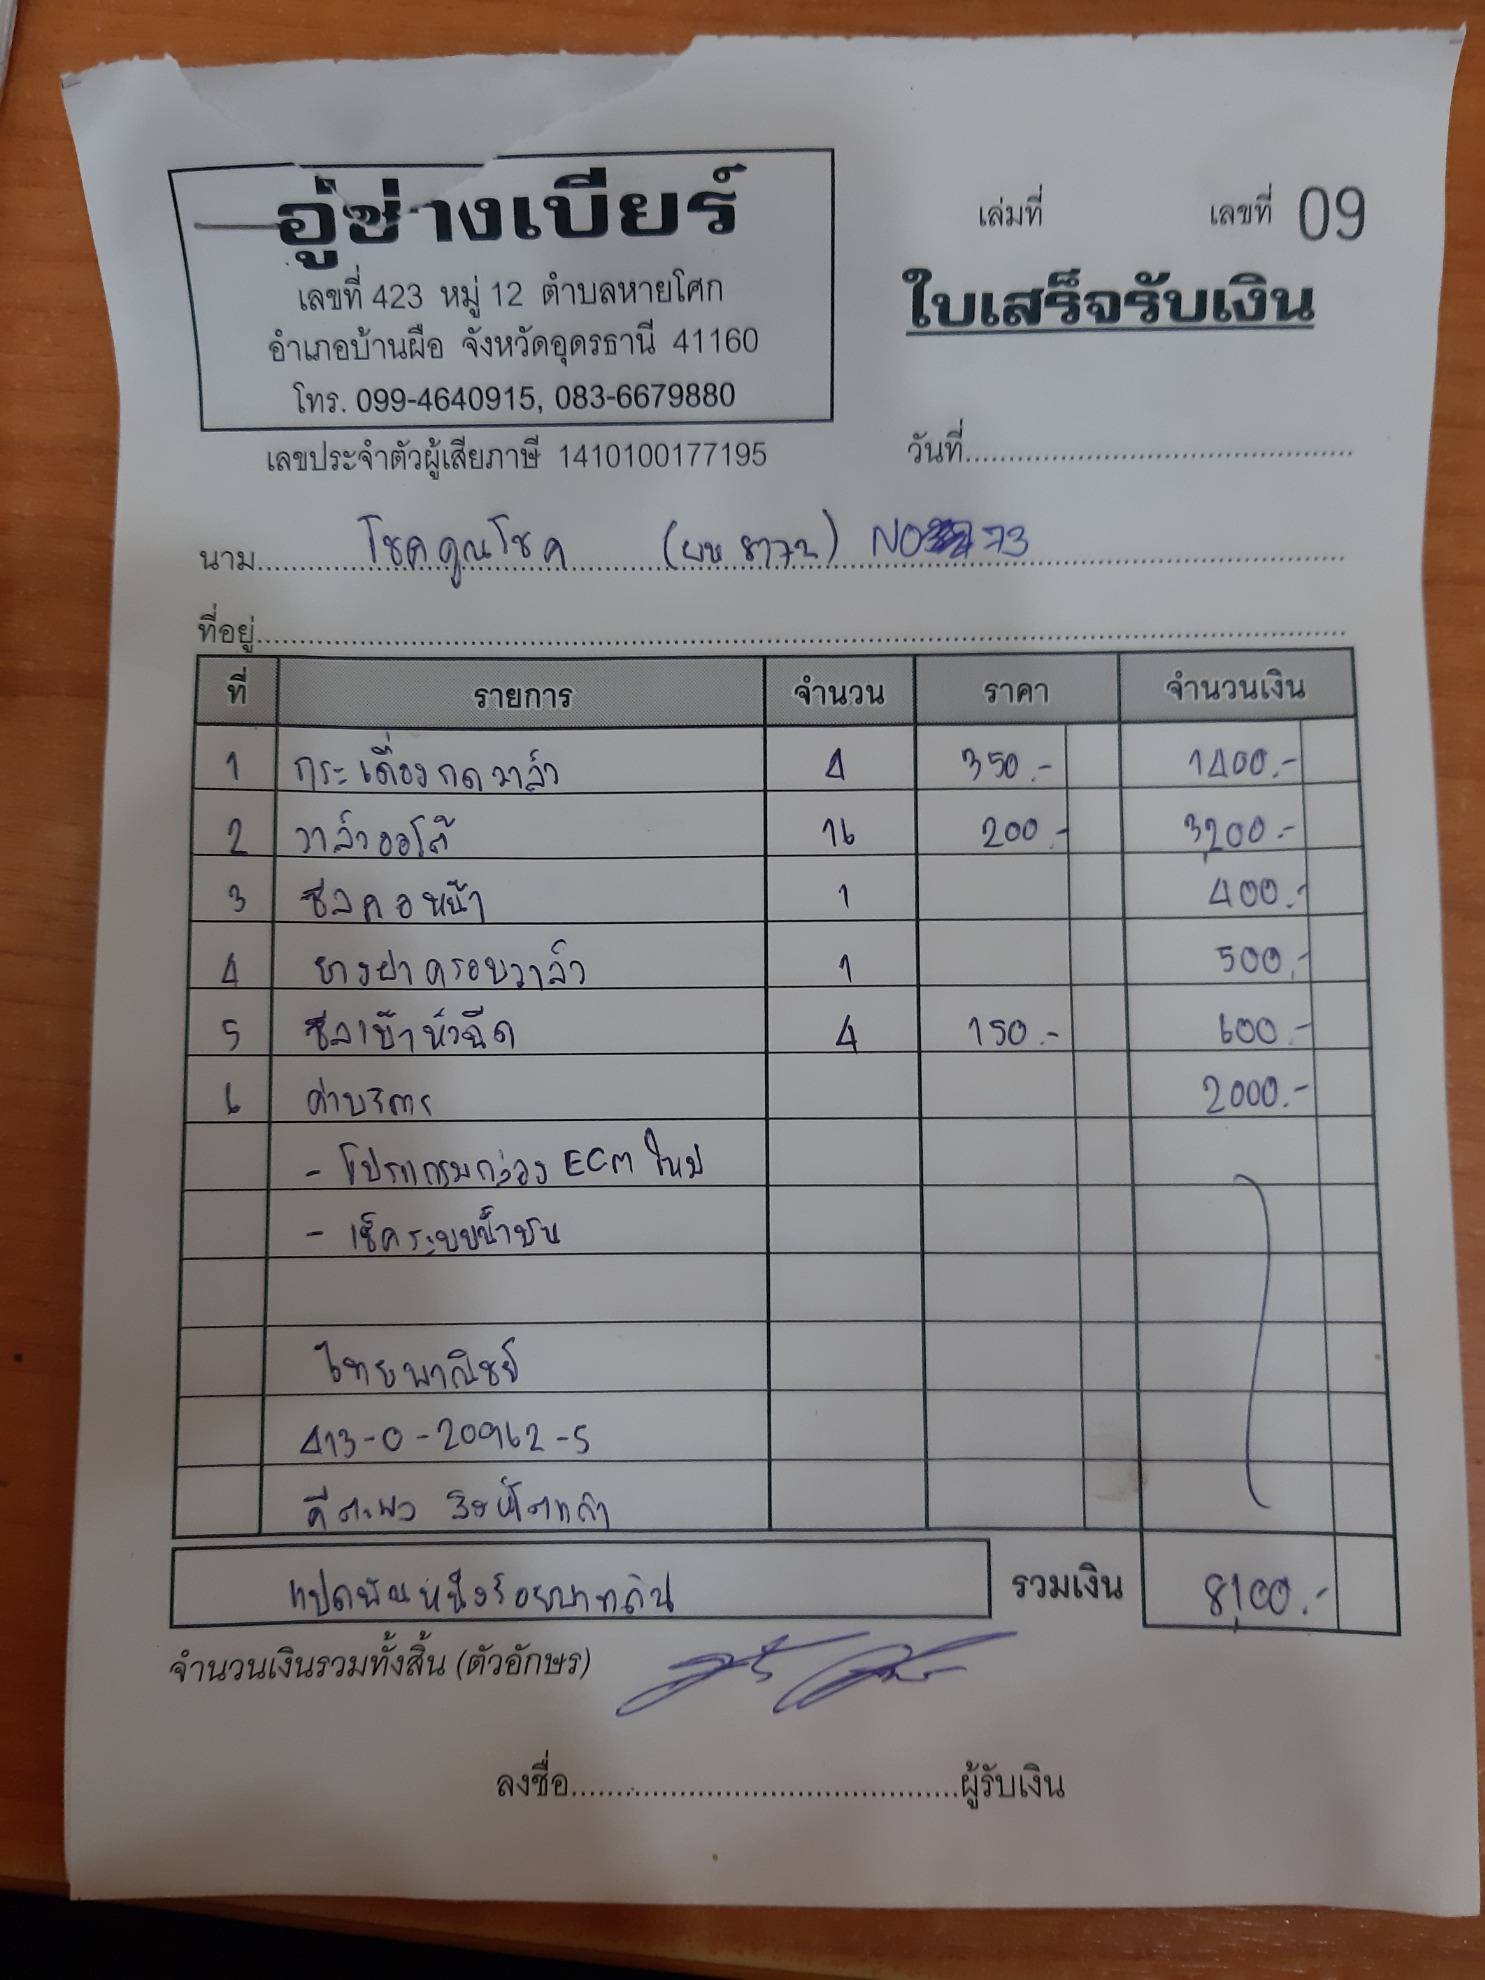 อู่ช่างเบียร์
เลขที่ 423 หมู่ 12 ตำบลหายโศก
อำเภอบ้านผือ จังหวัดอุดรธานี 41160
โทร. 099-4640915, 083-6679880
เลขประจำตัวผู้เสียภาษี 1410100177195
เล่มที่ เลขที่ 09
ใบเสร็จรับเงิน
วันที่
นาม โชคคูณโชค ( 8172) NO 73
ที่อยู่
ที่ รายการ จำนวน ราคา จำนวนเงิน
1 กระเดื่องกดวาล์ว 4 350.- 1400.-
2 วาล์วออโต้ 16 200.- 3,200.-
3 ซีลคอหน้า 1 400.-
4 ยางฝาครอบวาล์ว 1 500.-
5 ซีลเบ้าหัวฉีด 4 150.- 600.-
6 ค่าบริการ 2000.-
- โปรแกรมกล่อง ECM ใหม่
- เช็คระบบน้ำมัน
ไทยพาณิชย์
413-0-20962-5
แปดพันหนึ่งร้อยบาทถ้วน รวมเงิน 8,100.-
จำนวนเงินรวมทั้งสิ้น (ตัวอักษร)
ลงชื่อ ผู้รับเงิน